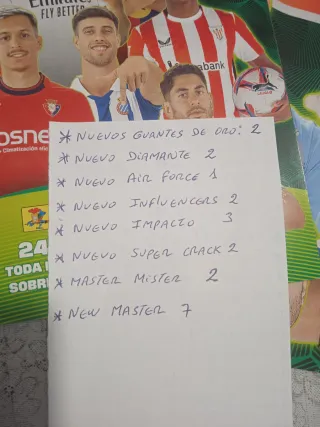 FLY BETTER
abank
osne
24
TODA
SOBRE
* NUEVOS GUANTES DE ORO: 2
* NUEVO DIAMANTE 2
* NUEVO AIR FORCE 1
* NUEVO INFLUENCERS 2
* NUEVO IMPACTO 3
* NUEVO SUPER CRACK 2
* MASTER MISTER 2
* NEW MASTER 7